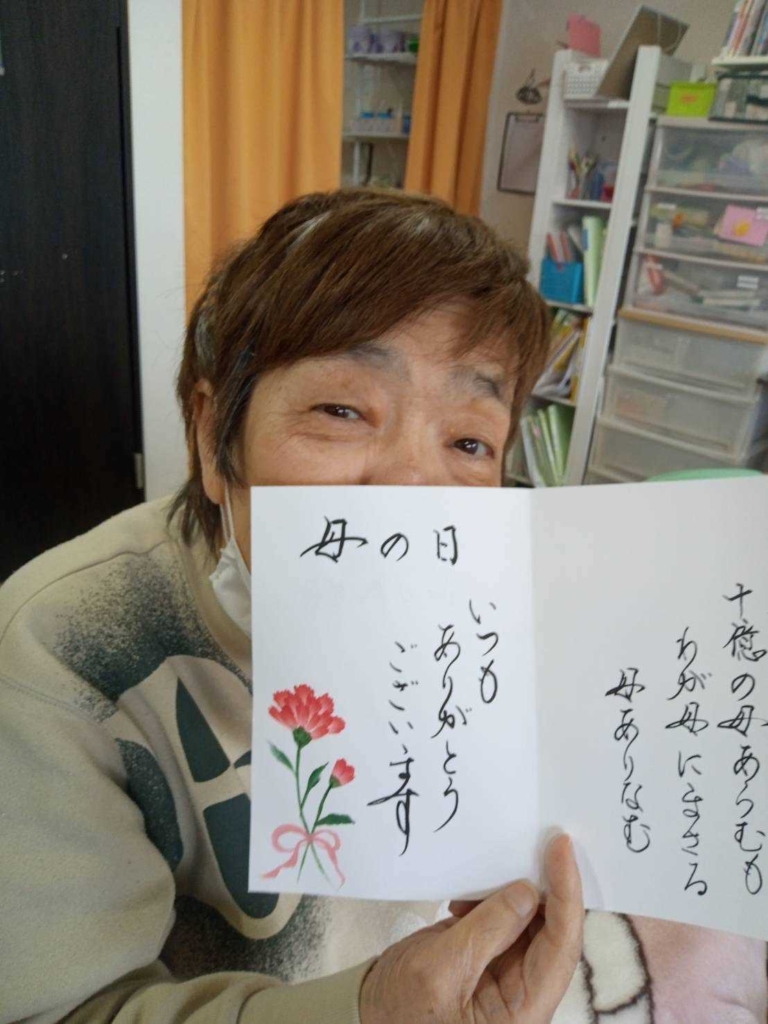 母の日
いつも
ありがとう
ございます
十億の母あらむも
わが母にまさる
母ありなむ